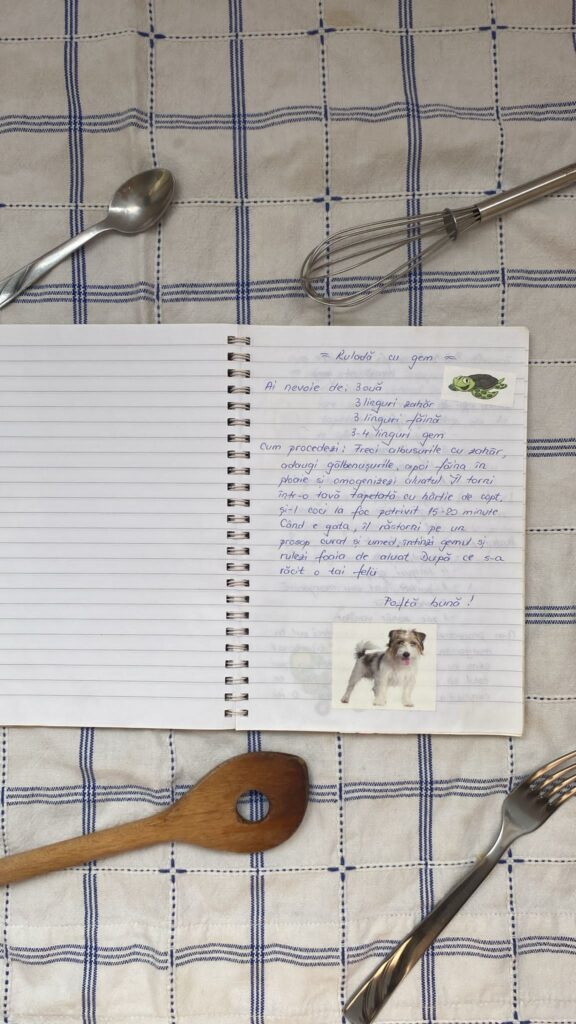 ≈ Ruladă cu gem ≈
Ai nevoie de: 3 ouă
3 linguri zahăr
3 linguri făină
3-4 linguri gem
Cum procedezi: Freci albusurile cu zahăr,
adaugi gălbenușurile, apoi făina în
ploaie si omogenizezi aluatul. Îl torni
într-o tavă tapetată cu hârtie de copt,
și-l coci la foc potrivit 15-20 minute.
Când e gata, îl răstorni pe un
prosop curat si umed, întinzi gemul si
rulezi foaia de aluat. După ce s-a
răcit o tai felii
Poftă bună!